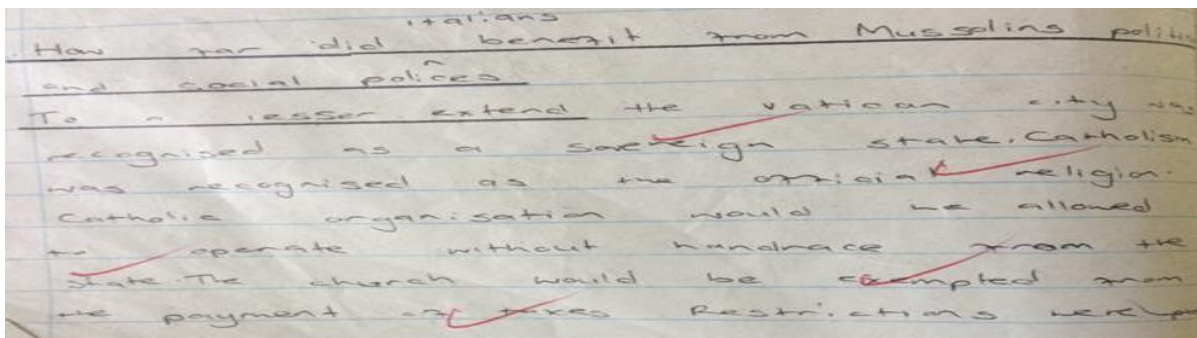 italians
How far did benefit from Mussolins politic
and social polices
To a lesser extend the vatican city was
recognised as a sovereign state. Catholism
was recognised as the official religion.
Catholic organisation would be allowed
to operate without from the
state. The church would be exempted from
the payment of taxes Restrictions were